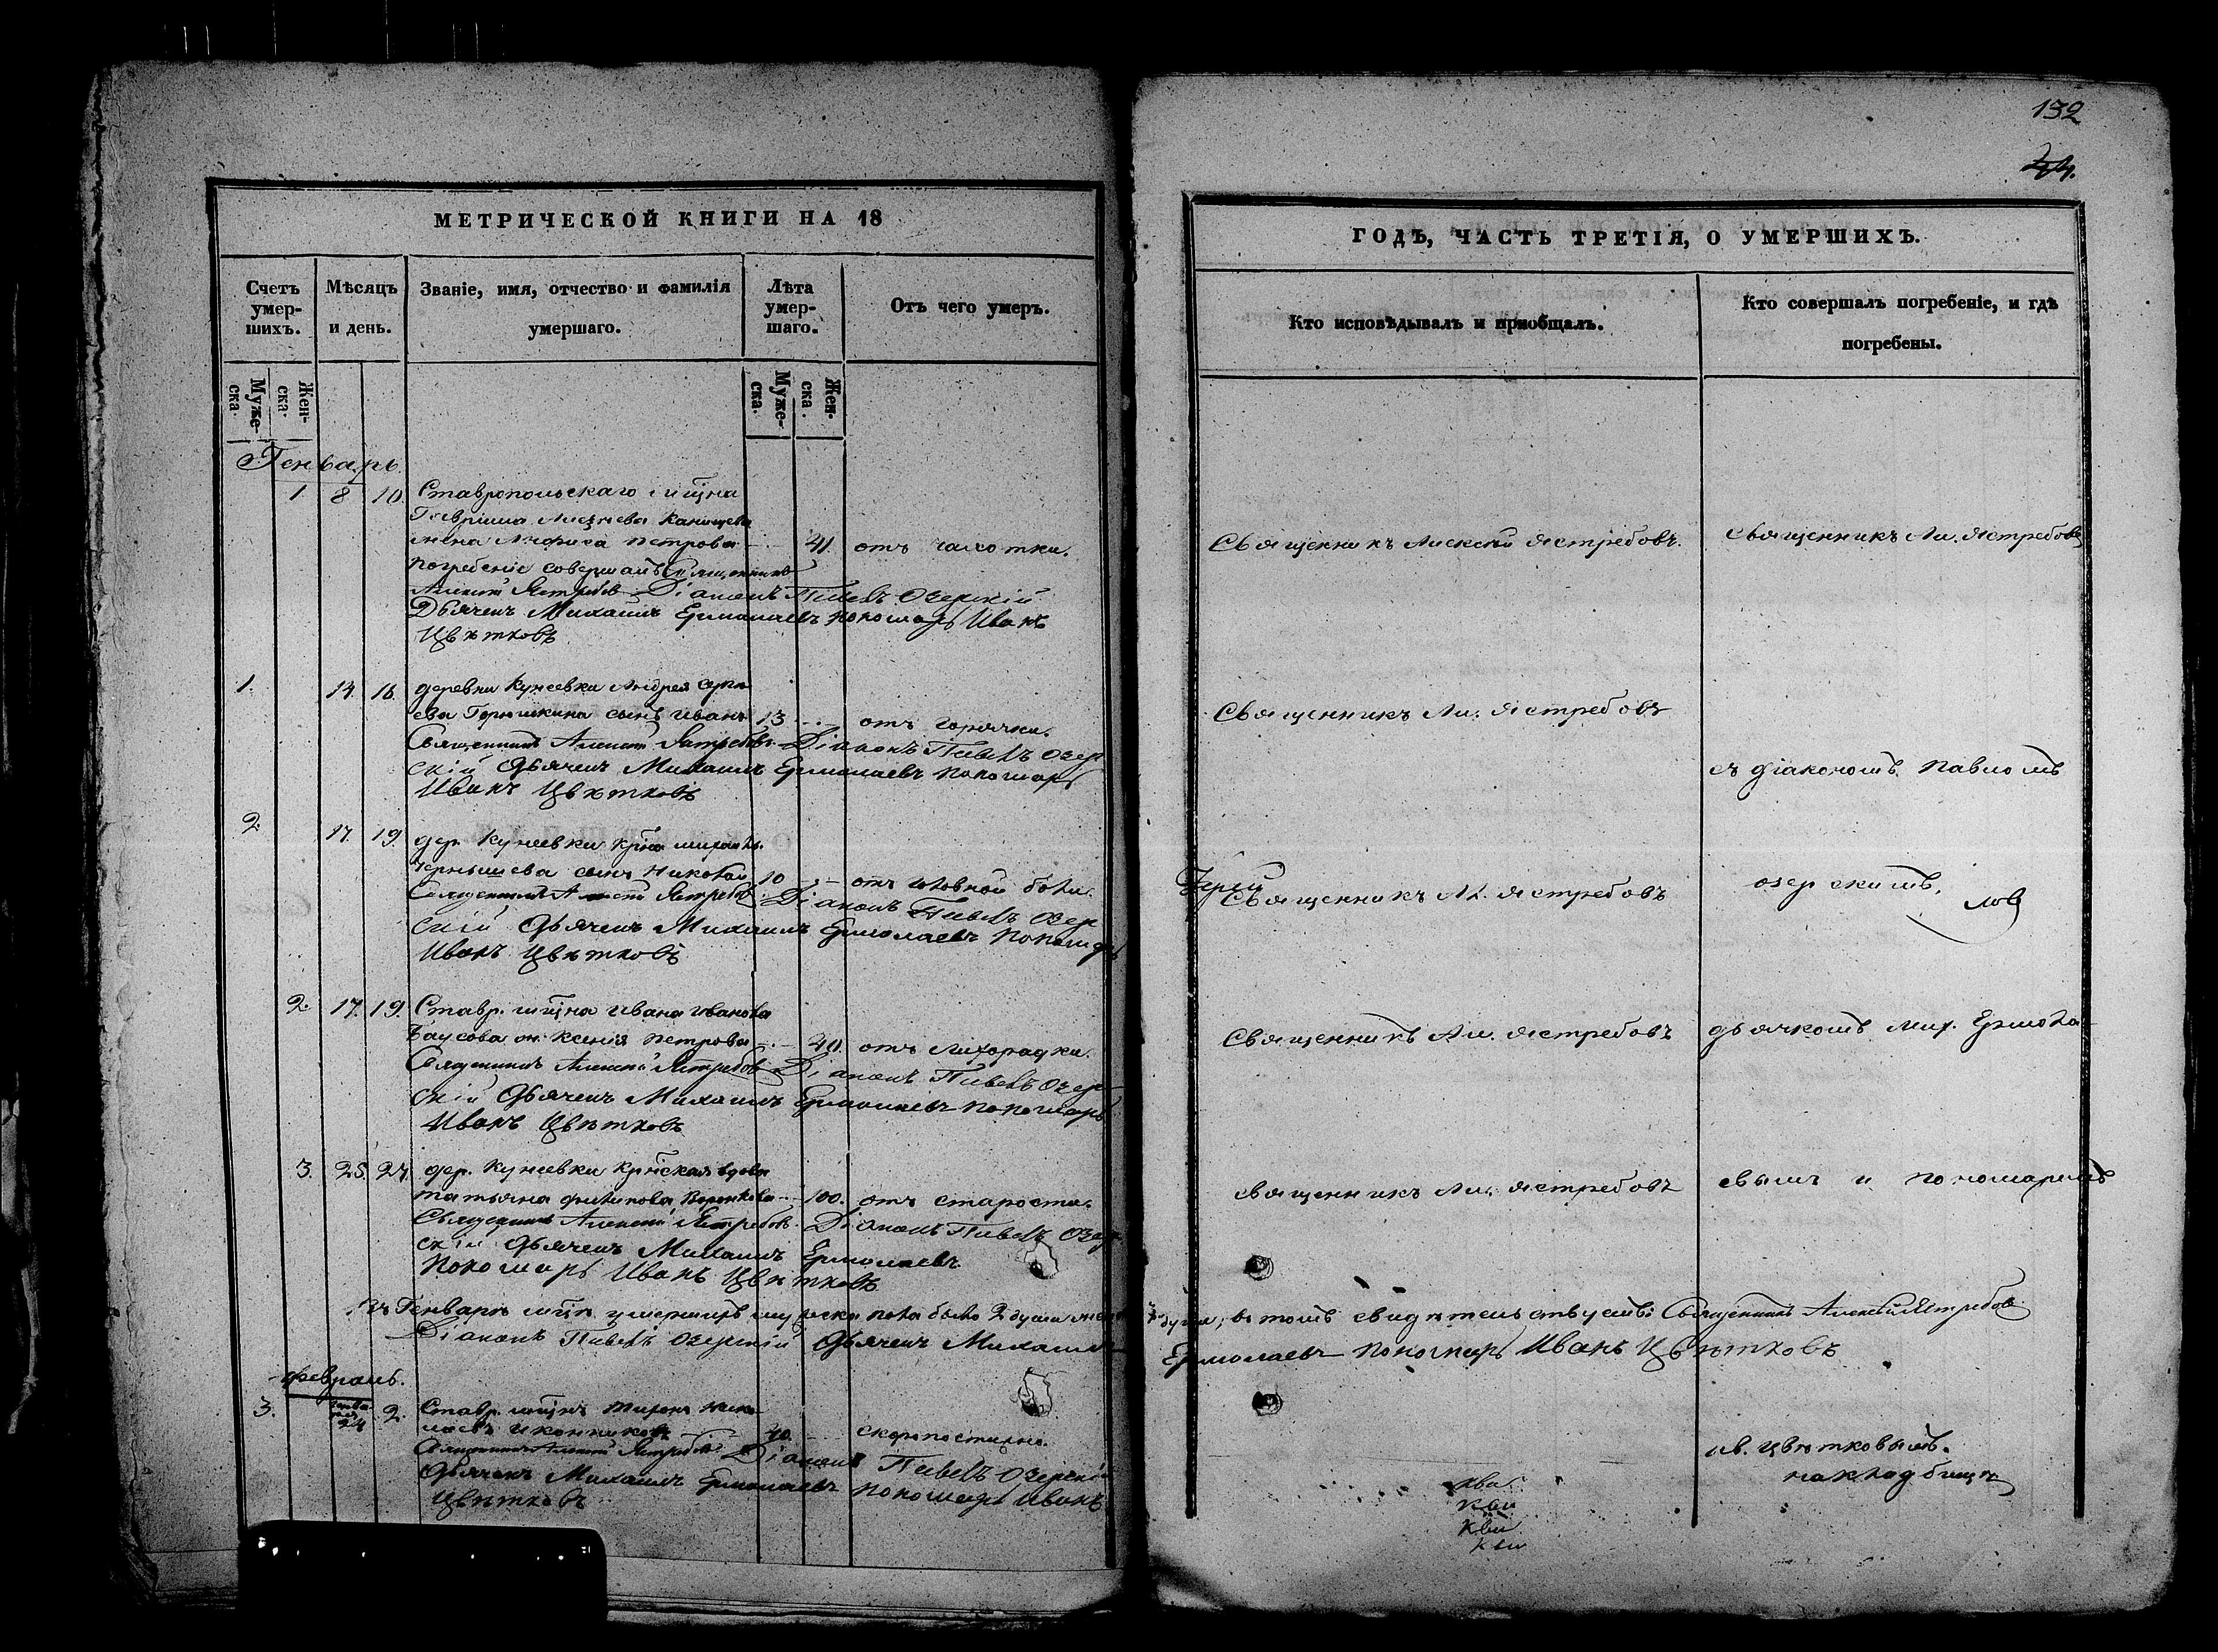 132
МЕТРИЧЕСКОЙ КНИГИ НА 18
Счетъ умер-шихъ.
Мѣсяцъ и день.
Званіе, имя, отчество и фамилія умершаго.
Лѣта умер-шаго.
Отъ чего умеръ.
Муже-ска.
Жен-ска.
Муже-ска.
Жен-ска.
Генварь.
1 8 10. Ставропольскаго мѣщна
Гавріила Канищева
жена Анфиса Петрова 41. отъ чахотки.
Погребеніе совершалъ Священникъ
Алексій Ястребовъ Діаконъ Павелъ Озерскій
Дьячекъ Михаилъ Ермолаевъ Пономарь Иванъ
Цвѣтковъ
1. 14. 16. деревни Кунеевки Андрея
Горюшкина сынъ Иванъ 13 отъ горячки.
Священникъ Алексій Ястребовъ Діаконъ Павелъ Озер
скій Дьячекъ Михаилъ Ермолаевъ Пономарь
Иванъ Цвѣтковъ
2. 17. 19. дер. Кунеевки Крѣна
Чернышева сынъ Николай 10 отъ головной боли.
Священникъ Алексій Ястребовъ Діаконъ Павелъ Озер
скій Дьячекъ Михаилъ Ермолаевъ Пономарь
Иванъ Цвѣтковъ
2. 17. 19. Ставр. мѣщна Ивана Иванова
Баусова ж. Ксенія Петрова 40. отъ лихорадки.
Священникъ Алексій Ястребовъ Діаконъ Павелъ Озер
скій Дьячекъ Михаилъ Ермолаевъ Пономарь
Иванъ Цвѣтковъ
3. 25. 27. дер. Кунеевки Крѣсткая вдова
Татьяна Филипова 100. отъ старости.
Священникъ Алексій Ястребовъ Діаконъ Павелъ Озер
скій Дьячекъ Михаилъ Ермолаевъ
Пономарь Иванъ Цвѣтковъ
Въ Генварѣ мцѣ умершихъ мужеска пола было 2 души
Діаконъ Павелъ Озерскій Дьячекъ Михаилъ
Февраль.
3. Генваря 2. Ставр. мѣщнъ Тихонъ Нико
лаевъ Иконниковъ 40. скоропостижно.
Священникъ Алексій Ястребовъ Діаконъ Павелъ Озерскій
Дьячекъ Михаилъ Ермолаевъ Пономарь Иванъ
Цвѣтковъ
ГОДЪ, ЧАСТЬ ТРЕТІЯ, О УМЕРШИХЪ.
Кто исповѣдывалъ и пріобщалъ.
Кто совершалъ погребеніе, и гдѣ погребены.
Священникъ Алексѣй Ястребовъ. Священникъ Ал. Ястребовъ
Священникъ Ал. Ястребовъ
съ діакономъ Павломъ
Іерей
Священникъ Ал. Ястребовъ озерскимъ,
Священникъ Ал. Ястребовъ дьячкомъ Мих. Ермола
священникъ Ал. Ястребовъ евымъ и пономаремъ
души, въ томъ свидѣтельствуемъ: Священникъ Алексій Ястребовъ
Ермолаевъ Пономарь Иванъ Цвѣтковъ
Ив. Цвѣтковымъ.
на кладбищѣ